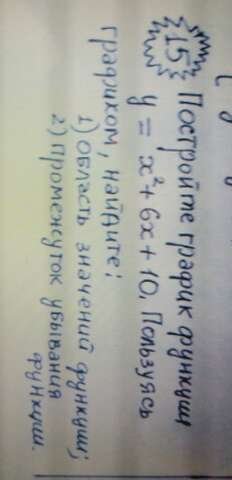 15 Постройте график функции
y = x² + 6x + 10. Пользуясь
графиком, найдите:
1) область значений функции;
2) промежуток убывания
функции.